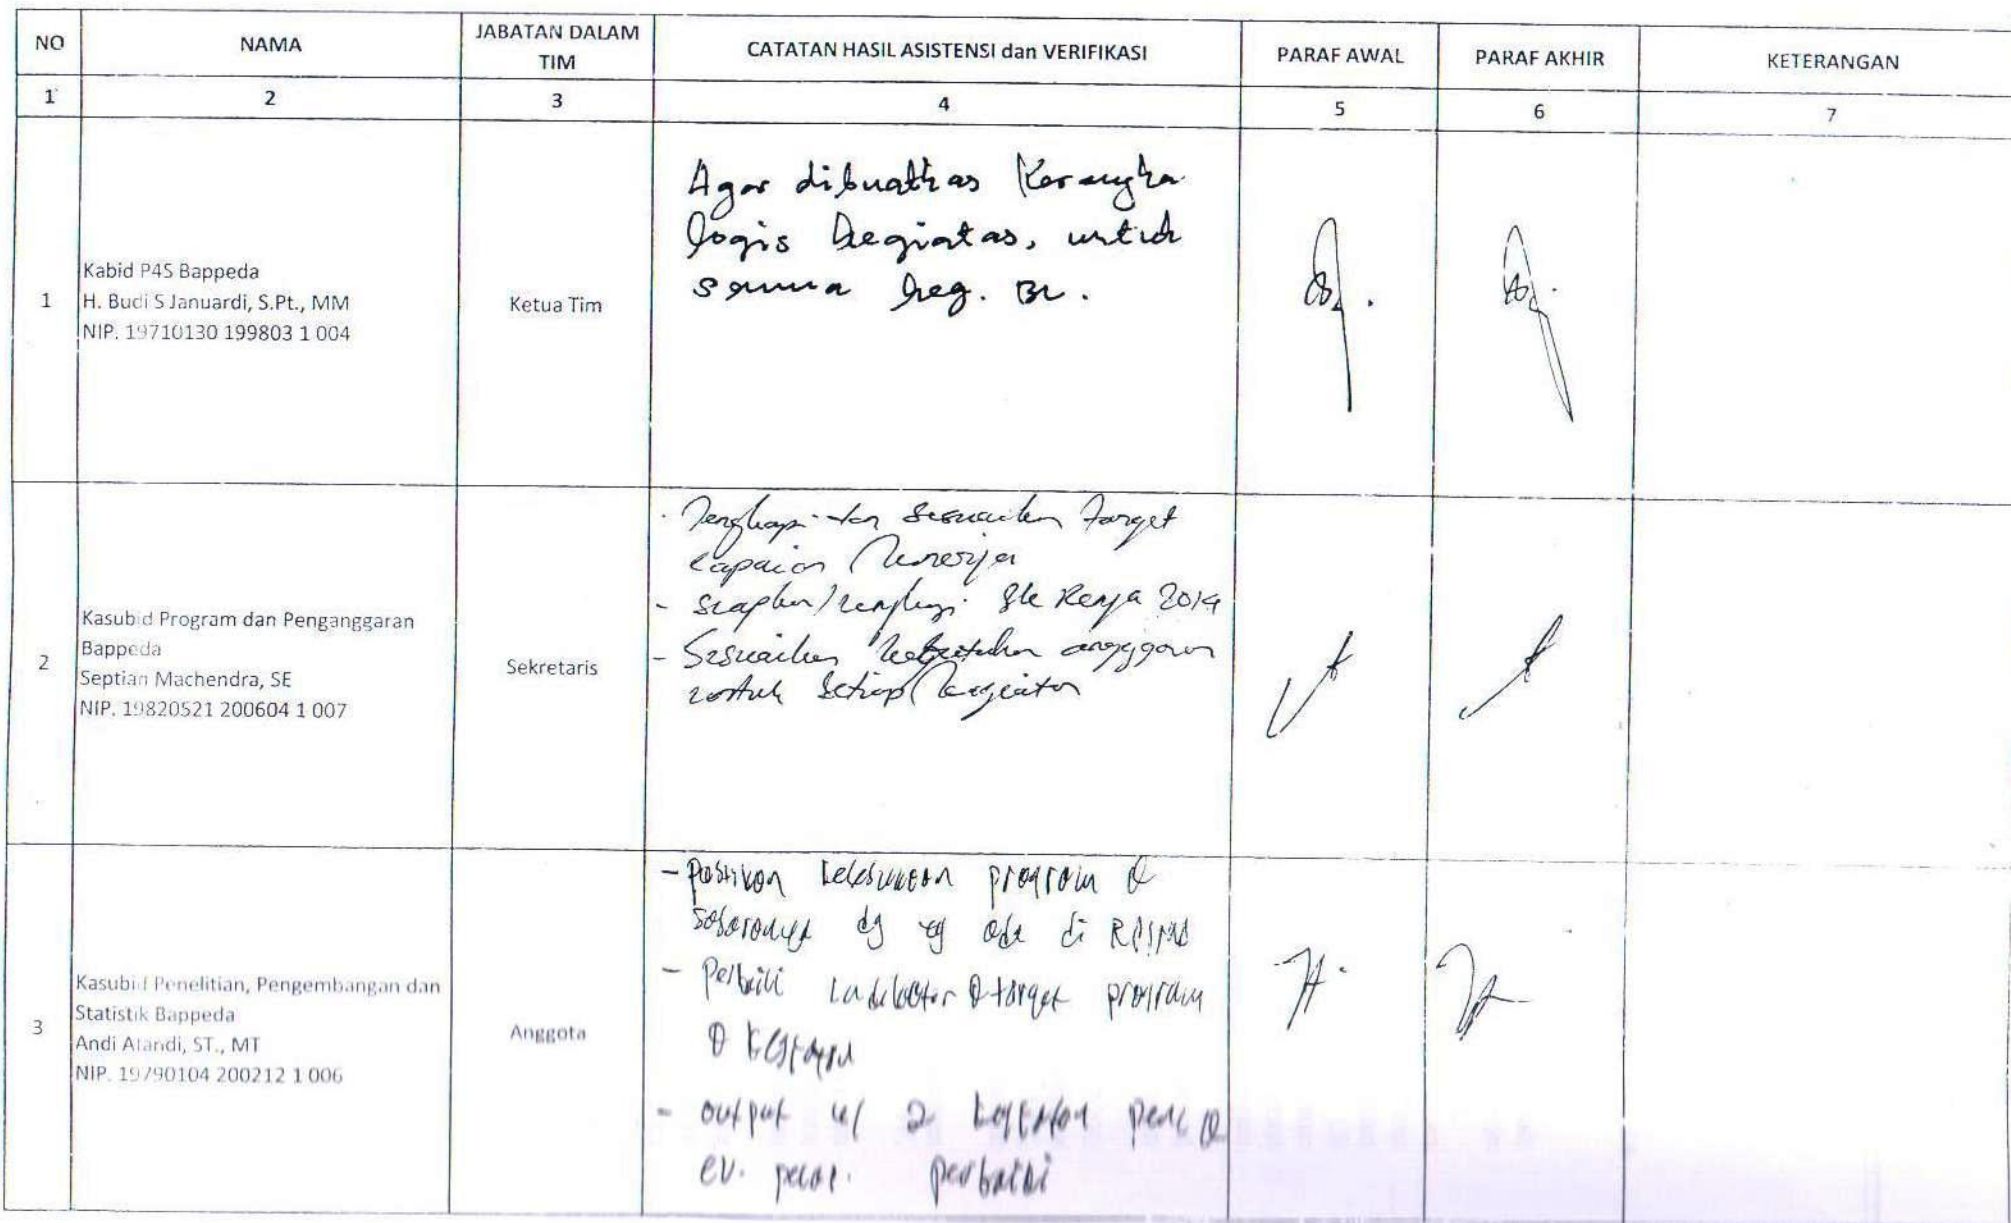 NO
NAMA
JABATAN DALAM
TIM
CATATAN HASIL ASISTENSI dan VERIFIKASI
PARAF AWAL
PARAF AKHIR
KETERANGAN
1
2
3
4
5
6
7
1
Kabid P4S Bappeda
H. Budi S Januardi, S.Pt., MM
NIP. 19710130 199803 1 004
Ketua Tim
Agar dibuatkan Kerangka
logis kegiatan, untuk
semua keg. BL.
2
Kasubid Program dan Penganggaran
Bappeda
Septian Machendra, SE
NIP. 19820521 200604 1 007
Sekretaris
- Lengkapi dan sesuaikan target
capaian kinerja
- siapkan/lengkapi Renja 2014
- Sesuaikan kebutuhan anggaran
untuk setiap kegiatan
3
Kasubid Penelitian, Pengembangan dan
Statistik Bappeda
Andi Afandi, ST., MT
NIP. 19790104 200212 1 006
Anggota
- pastikan program &
sasarannya dg yg ada di
- Perbaiki indikator & target program
& kegiatan
- output 2 kegiatan &
ev. perbaiki